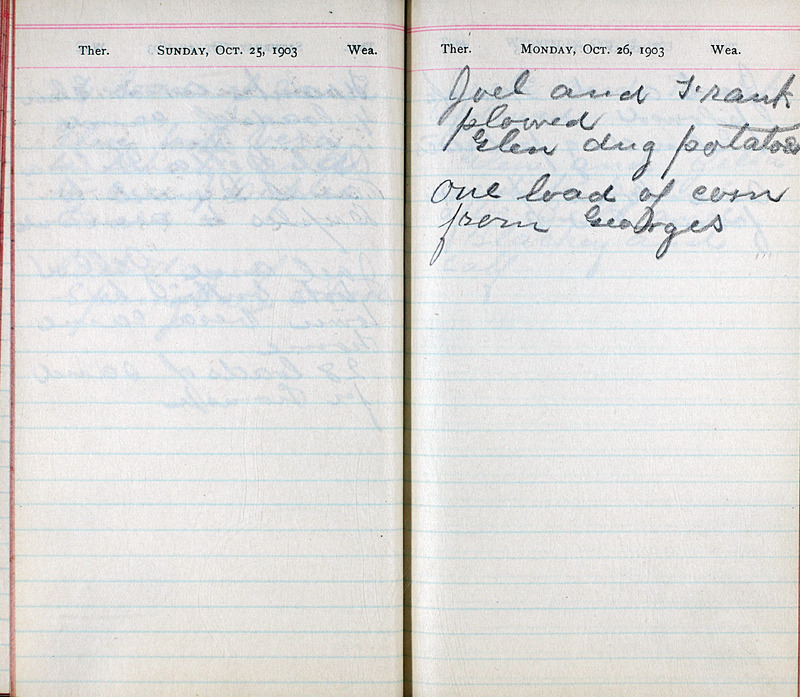 Ther. SUNDAY, OCT. 25, 1903 Wea.
Ther. MONDAY, OCT. 26, 1903 Wea.
Joel and Frank
plowed
Glen dug potatoes
One load of corn
from Georges